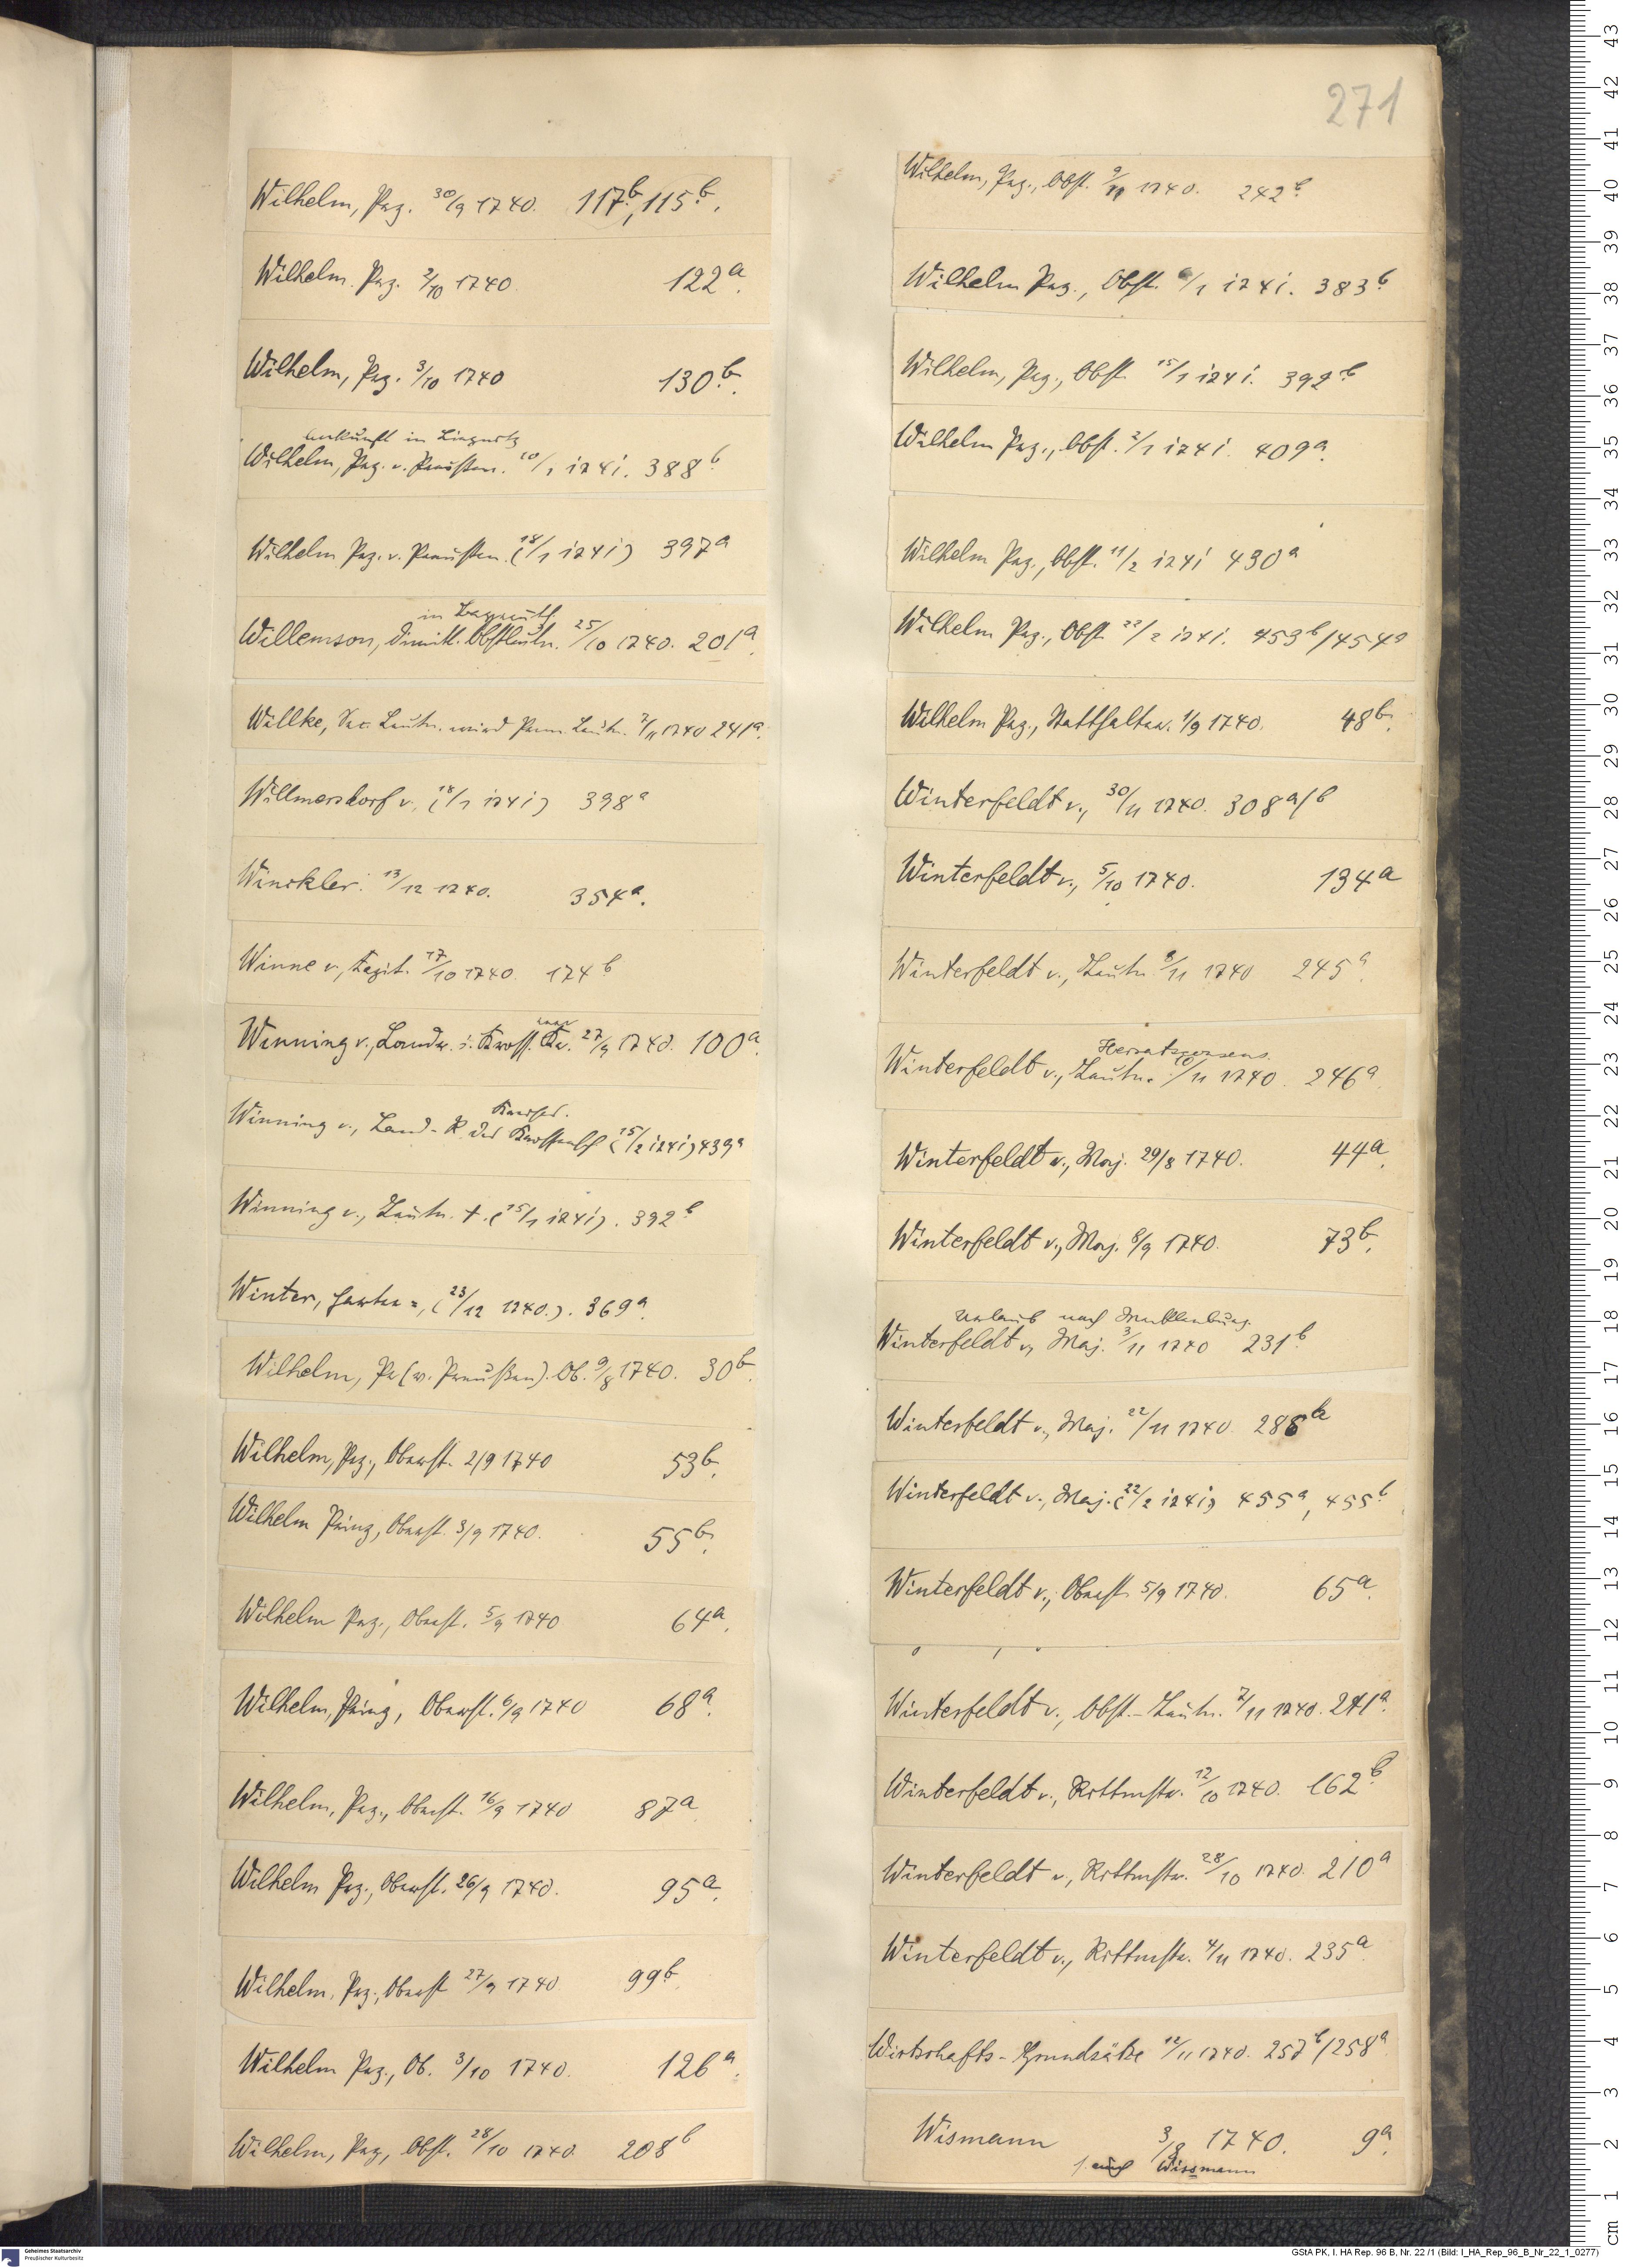 271
Wilhelm, Prz. 30/9 1740. 117b, 115b.
Wilhelm. Prz. 2/10 1740 122a.
Wilhelm, Prz. 3/10 1740 130b.
Ankunft in Liegnitz
Wilhelm, Prz. v. Preußen. 10/1 1741. 388b
Wilhelm Prz. v. Preußen. (18/1 1741) 397a
in Bayreuth
Willemson, dimitt. Obstleutn. 25/10 1740. 201a.
Willke, Sec. Leutn. wird Prem. Leutn. 7/11 1740 241a.
Willmersdorf v. (18/1 1741) 398a
Winckler. 13/12 1740. 354a.
Winne v., Kapit. 17/10 1740. 174b
Winning v., Landr. i. Kross. Kr. 27/9 1740. 100a.
Winning v., Land-R. des Krossensch (15/2 1741) 439a
Winning v., Leutn. †. (15/1 1741). 392b
Winter, (23/12 1740.). 369a.
Wilhelm, Pr (v. Preußen). Ob. 9/8 1740. 30b.
Wilhelm, Prz., Oberst. 2/9 1740 53b.
Wilhelm Prinz, Oberst. 3/9 1740. 55b.
Wilhelm Prz., Oberst. 5/9 1740 64a.
Wilhelm, Prinz, Oberst. 6/9 1740 68a.
Wilhelm, Prz., Oberst. 16/9 1740 87a.
Wilhelm Prz., Oberst. 26/9 1740. 95a.
Wilhelm, Prz., Oberst 27/9 1740. 99b.
Wilhelm Prz., Ob. 3/10 1740. 126a.
Wilhelm, Prz, Obst. 28/10 1740. 208b
Wilhelm, Prz., Obst. 9/11 1740. 242b.
Wilhelm Prz., Obst. 6/1 1741. 383b
Wilhelm, Prz., Obst. 15/1 1741. 392b
Wilhelm Prz., Obst. 2/1 1741. 409a.
Wilhelm Prz., Obst. 11/2 1741 430a
Wilhelm Prz., Obst. 22/2 1741. 453b/454a
Wilhelm Prz., Statthalter. 1/9 1740. 48b.
Winterfeldt v., 30/11 1740. 308a/b
Winterfeldt v., 5/10 1740. 134a
Winterfeldt v., Leutn. 8/11 1740 245a.
Heiratskonsens.
Winterfeldt v., Leutn. 10/11 1740. 246a.
Winterfeldt v., Maj. 29/8 1740. 44a.
Winterfeldt v., Maj. 8/9 1740. 73b.
Urlaub nach Mecklenburg.
Winterfeldt v, Maj. 3/11 1740 231b
Winterfeldt v., Maj. 22/11 1740. 286a
Winterfeldt v., Maj. (22/2 1741) 455a, 455b
Winterfeldt v., Oberst 5/9 1740. 65a.
Winterfeldt v., Obst.-Leutn. 7/11 1740. 241a.
Winterfeldt v., Rittmstr. 12/10 1740. 162b
Winterfeldt v., Rittmstr. 28/10 1740. 210a
Winterfeldt v., Rittmstr. 4/11 1740. 235a
Wirtschafts-Grundsätze 12/11 1740. 257b/258a
Wismann 3/8 1740. 9a.
s. auch Wissmann
Geheimes Staatsarchiv
Preußischer Kulturbesitz
GStA PK, I. HA Rep. 96 B, Nr. 22 /1 (Bild: I_HA_Rep_96_B_Nr_22_1_0277)
cm 1 2 3 4 5 6 7 8 9 10 11 12 13 14 15 16 17 18 19 20 21 22 23 24 25 26 27 28 29 30 31 32 33 34 35 36 37 38 39 40 41 42 43